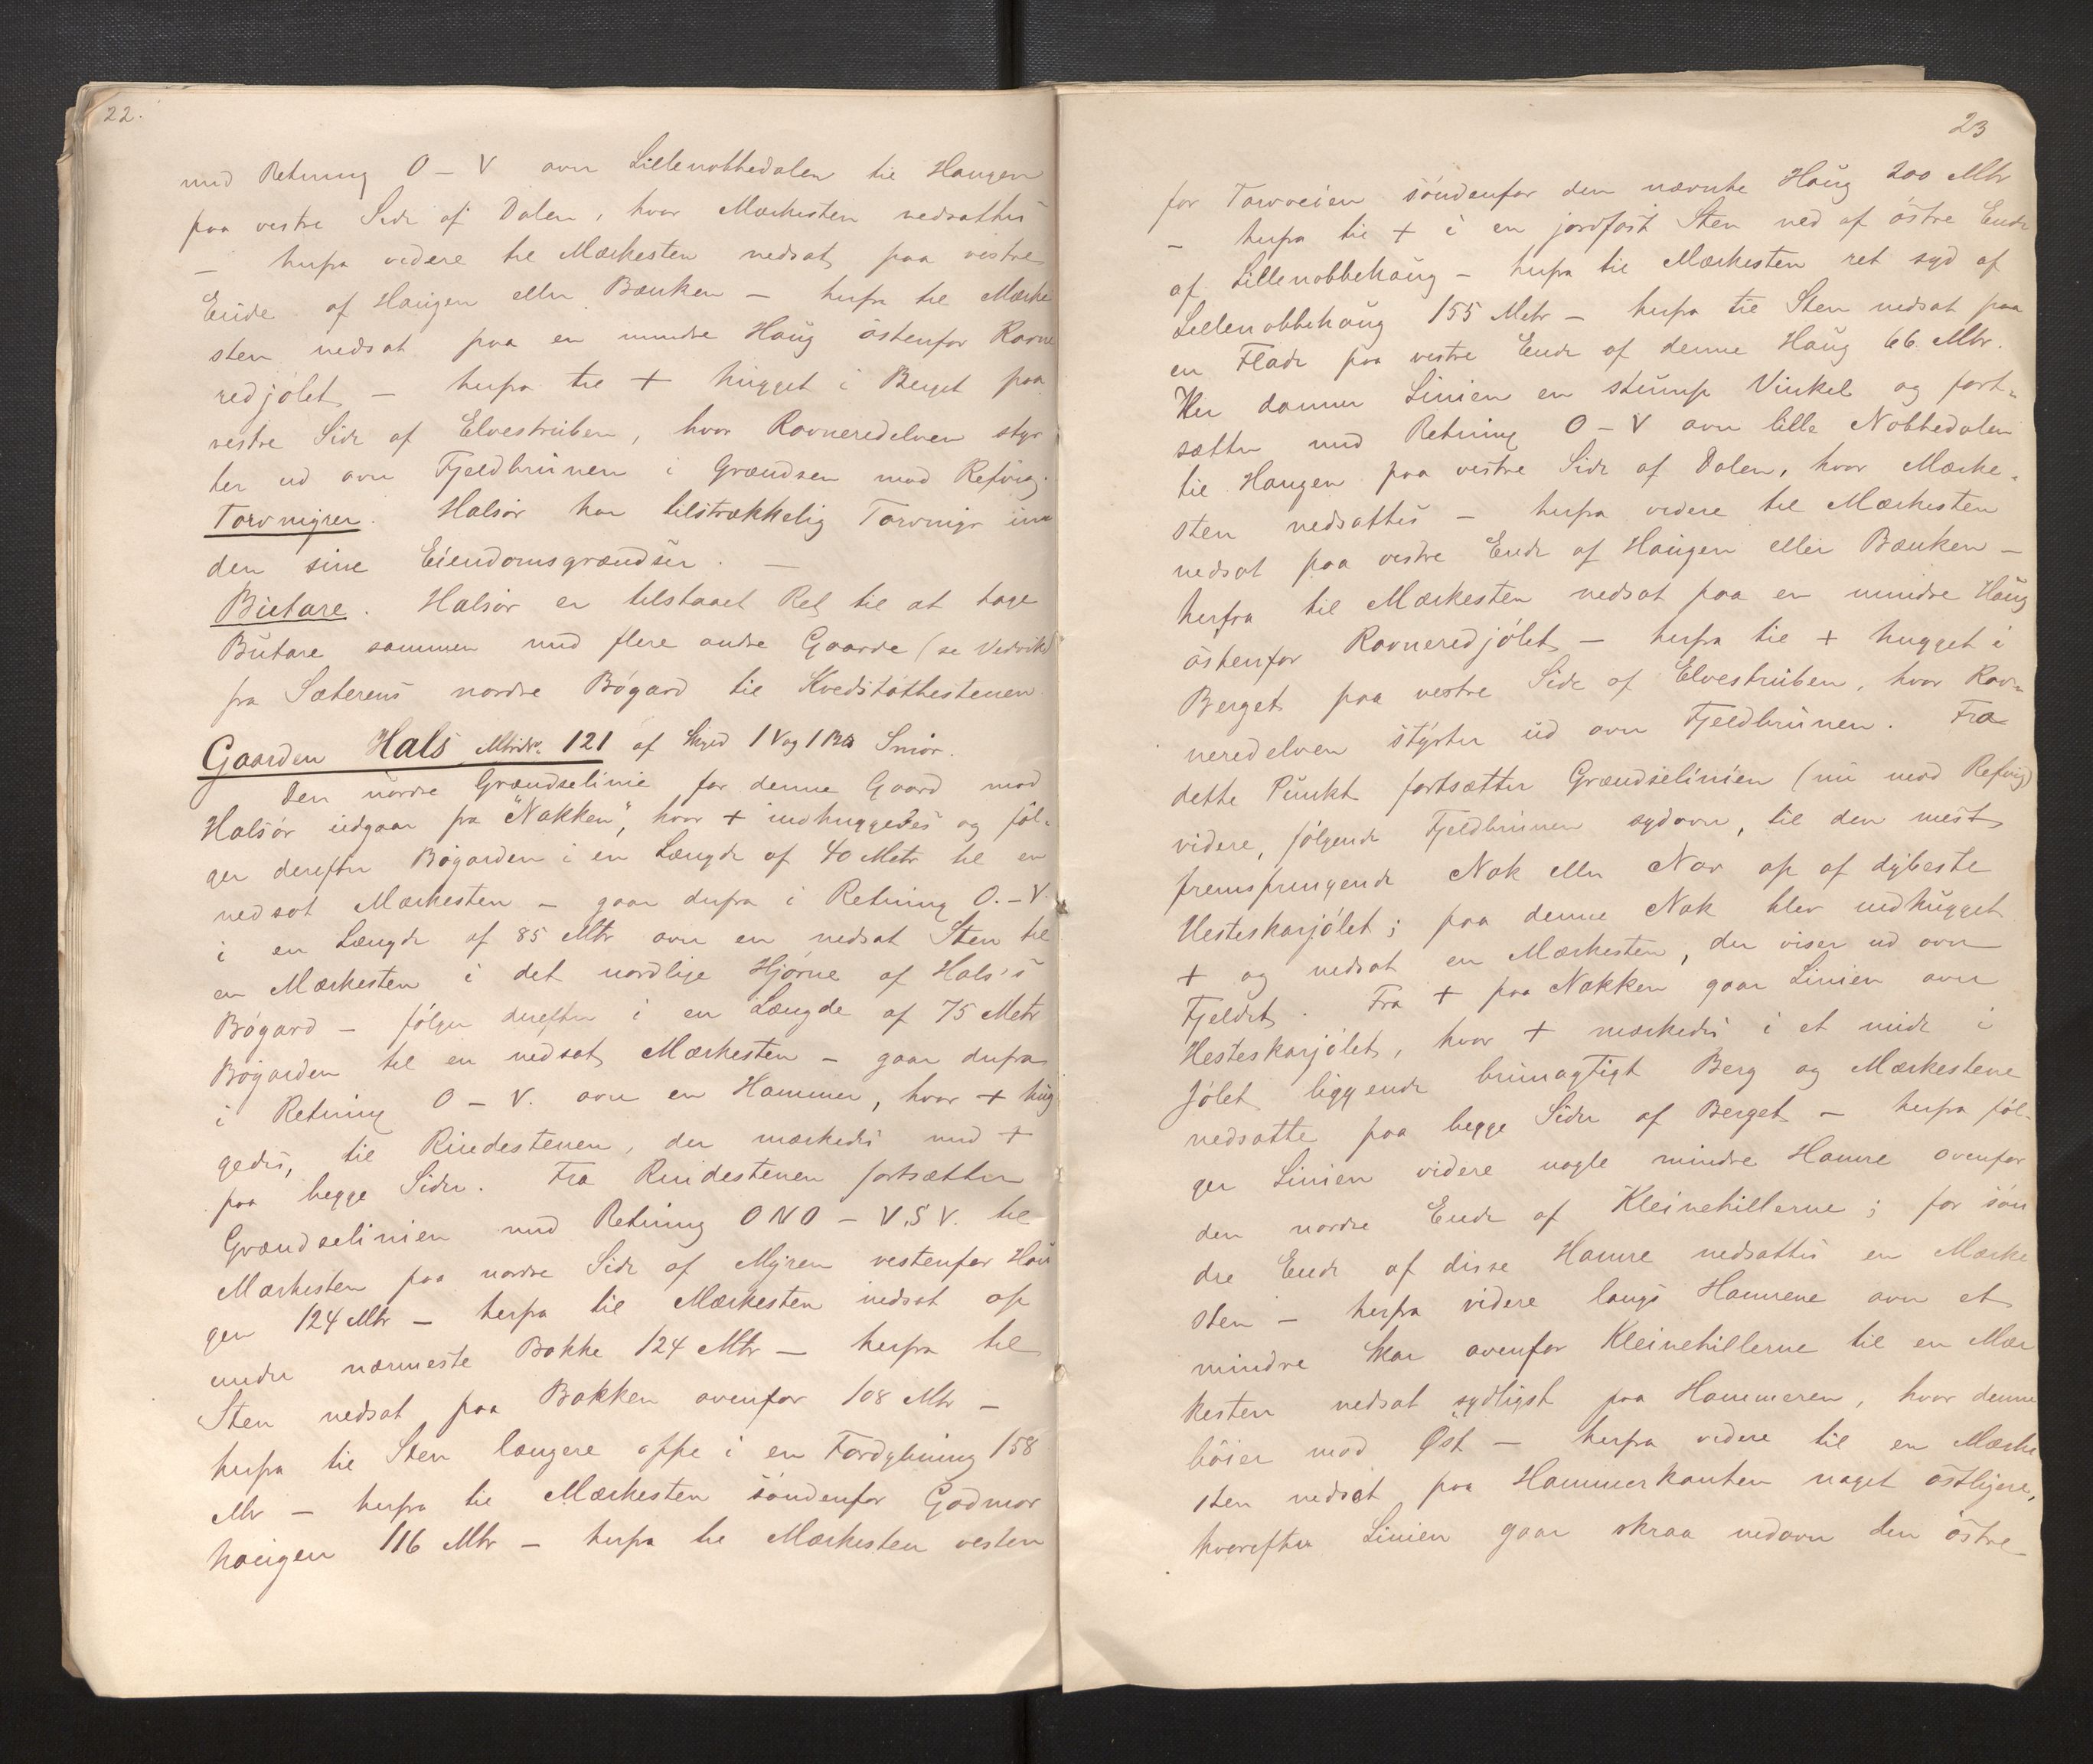 22.
med Retning O - V over Lillenobbedalen til Haugen
paa vestre Side af Dalen, hvor Mærkesten nedsattes
- herfra videre til Mærkesten nedsat paa vestre
Ende af Haugen eller Banken - herfra til Mærke
sten nedsat paa en mindre Haug östenfor Ravne
redjølet - herfra til + hugget i Berget paa
vestre Side af Elvestruben, hvor Ravneredelven styr
ter ud over Fjeldbrunen i Grændsen mod Refvig.
Torvmyrer. Halsør har tilstrækkelig Torvmyr in
den sine Eiendomsgrændser. -
Butare. Halsør er tilstaaet Ret til at tage
Butare sammen med flere andre Gaarde (se Vedvik)
fra Sæterens nordre Bøgard til Kvedstøthestenen.
Gaarden Hals Mtrikr. 121 af Skyld 1 Vog 1 Smør.
Den nordre Grændselinie for denne Gaard mod
Halsør udgaar fra "Nakken", hvor + indhuggedes og føl-
ger derefter Bøgarden i en Længde af 40 Metr til en
nedsat Mærkesten - gaar derfra i Retning O. - V.
i en Længde af 85 Mtr over en nedsat Sten til
en Mærkesten i det nordlige Hjørne af Hals's
Bøgard - følger derefter i en Længde af 75 Metr
Bøgarden til en nedsat Mærkesten - gaar derfra
i Retning O - V. over en Hammer, hvor + hug
gedes, til Rindestenen, der mærkedes med +
paa begge Sider. Fra Rindestenen fortsætter
Grændselinien med Retning ONO - V.S V. til
Mærkesten paa nordre Side af Myren vestenfor Hau
gen 124 Mtr - herfra til Mærkesten nedsat op
under nærmeste Bakke 124 Mtr - herfra til
Sten nedsat paa Bakken ovenfor 108 Mtr -
herfra til Sten længere oppe i en Fordybning 158
Mtr - herfra til Mærkesten søndenfor Godmor
haugen 116 Mtr - herfra til Mærkesten vesten
23
for Torvveien søndenfor den nævnte Haug 200 Mtr
- herfra til + i en jordfast Sten ned af østre Ende
af Lillenobbehaug - herfra til Mærkesten ret syd af
Lillenobbehaug 155 Metr - herfra til Sten nedsat paa
en Flade paa vestre Ende af denne Haug 66 Mtr.
Her danner Linien en stump Vinkel og fort-
sætter med Retning O - V over lille Nobbedalen
til Haugen paa vestre Side af Dalen, hvor Mærke-
sten nedsattes - herfra videre til Mærkesten
nedsat paa vestre Ende af Haugen eller Banken -
herfra til Mærkesten nedsat paa en mindre Haug
østenfor Ravneredjølet - herfra til + hugget i
Berget paa vestre Side af Elvestruben, hvor Rav-
neredelven styrter ud over Fjeldbrunen. Fra
dette Punkt fortsætter Grændselinien (nu mod Refvig)
videre, følgende Fjeldbrunen sydover, til den mest
fremspringende Nak eller Nov op af dybeste
Hesteskarjølet; paa denne Nak blev indhugget
+ og nedsat en Mærkesten, der viser ud over
Fjeldet. Fra + paa Nakken gaar Linien over
Hesteskarjølet, hvor + mærkedes i et midt i
Jølet liggende brunagtigt Berg og Mærkestene
nedsatte paa begge Sider af Berget - herfra føl-
ger Linien videre nogle mindre Hamre ovenfor
den nordre Ende af Kleinehillerne; for søn
dre Ende af disse Hamre nedsattes en Mærke
sten - herfra videre langs Hamrene over et
mindre Skar ovenfor Kleinehillerne til en Mær
kesten nedsat sydligst paa Hammeren, hvor denne
bøier mod Øst - herfra videre til en Mærke
sten nedsat paa Hammerkanten noget østligere,
hvorefter Linien gaar skraa nedover den østre